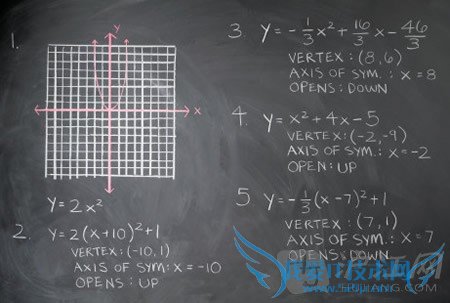 1.
y
x
y = 2x²
2. y = 2(x+10)²+1
VERTEX: (-10,1)
AXIS OF SYM: x = -10
OPENS: UP
3. y = -1/3x² + 16/3x - 46/3
VERTEX: (8,6)
AXIS OF SYM.: x = 8
OPENS: DOWN
4. y = x² + 4x - 5
VERTEX: (-2,-9)
AXIS OF SYM.: x = -2
OPEN: UP
5 y = -1/3(x-7)² + 1
VERTEX: (7,1)
AXIS OF SYM.: x = 7
OPENS: DOWN